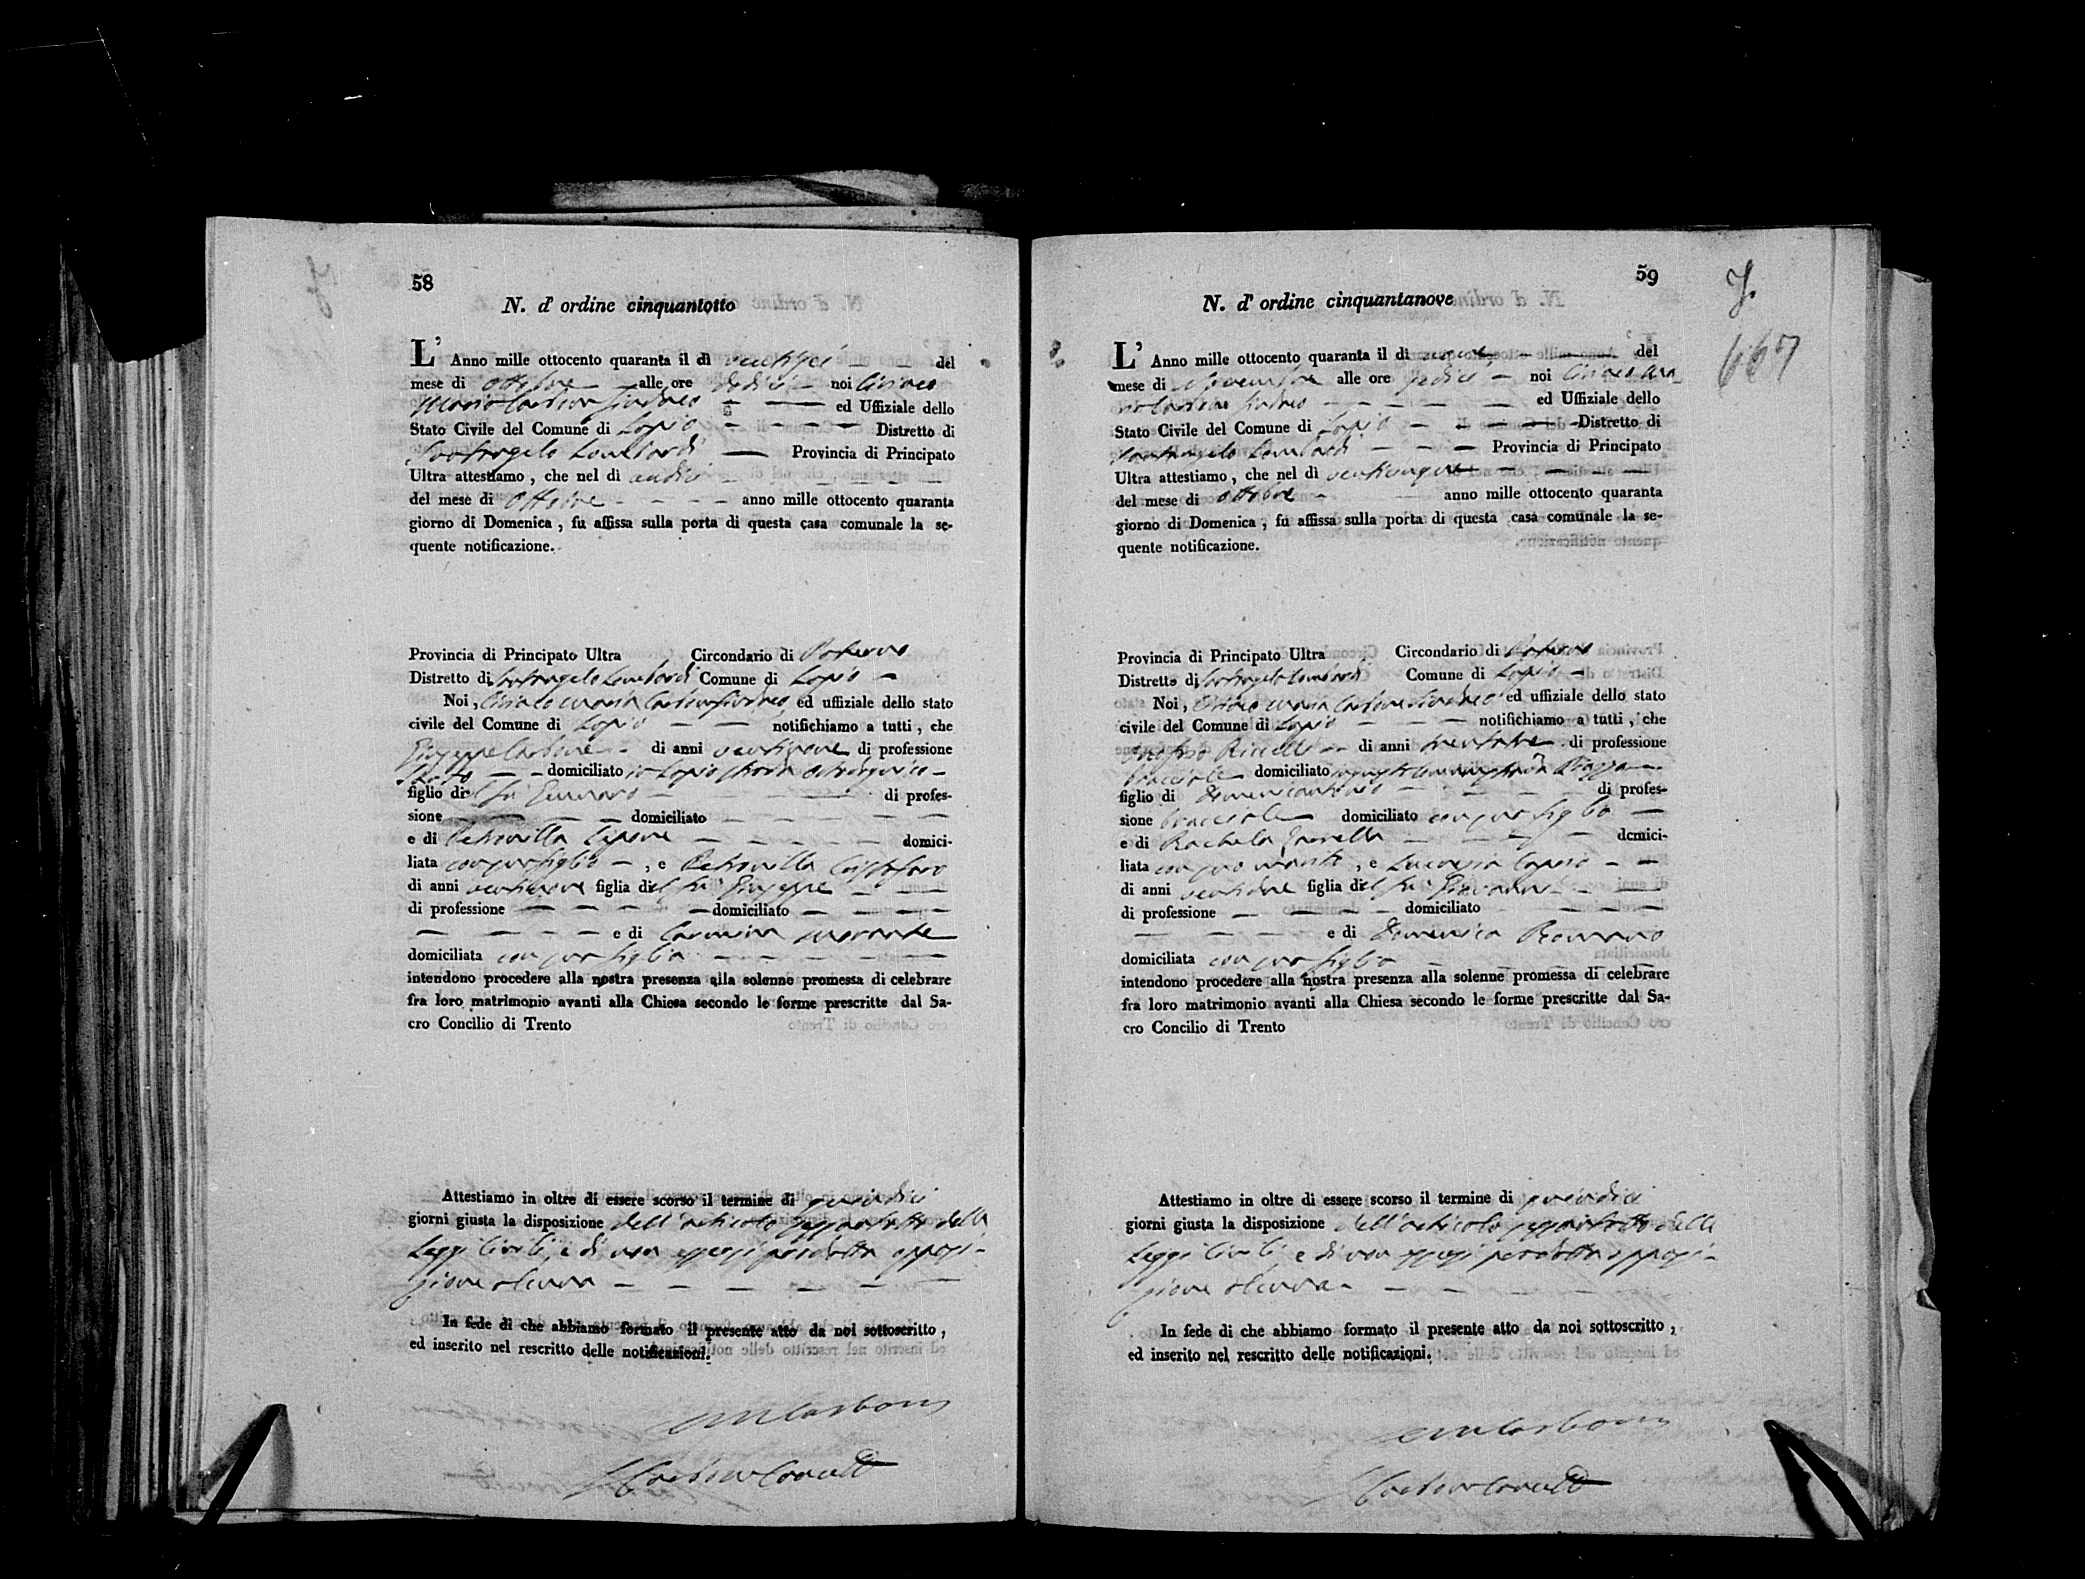 58
N. d' ordine cinquantotto
L' Anno mille ottocento quaranta il dì ventisei del
mese di Ottobre alle ore dodici noi Ciriaco
Maria Carbone Sindaco ed Uffiziale dello
Stato Civile del Comune di Lapio Distretto di
Santangelo Lombardi Provincia di Principato
Ultra attestiamo, che nel dì undici
del mese di Ottobre anno mille ottocento quaranta
giorno di Domenica, fu affissa sulla porta di questa casa comunale la se-
quente notificazione.
Provincia di Principato Ultra Circondario di Paterno
Distretto di Santangelo Lombardi Comune di Lapio
Noi, Ciriaco Maria Carbone Sindaco ed uffiziale dello stato
civile del Comune di Lapio notifichiamo a tutti, che
Giuseppe Carbone di anni ventinove di professione
domiciliato in Lapio strada
figlio del fu Gennaro di profes-
sione domiciliato
e di Petronilla domici-
liata con suo figlio, e Petronilla
di anni ventinove figlia del fu Giuseppe
di professione domiciliato
e di Carmina Morante
domiciliata con sua figlia
intendono procedere alla nostra presenza alla solenne promessa di celebrare
fra loro matrimonio avanti alla Chiesa secondo le forme prescritte dal Sa-
cro Concilio di Trento
Attestiamo in oltre di essere scorso il termine di quindici
giorni giusta la disposizione dell'articolo sessantotto delle
Leggi Civili, e di non essersi prodotta opposi-
zione alcuna
In fede di che abbiamo formato il presente atto da noi sottoscritto,
ed inserito nel rescritto delle notificazioni.
CM Carbone
59
N. d' ordine cinquantanove
7.
667
L' Anno mille ottocento quaranta il dì nove del
mese di Novembre alle ore sedici noi Ciriaco Ma-
ria Carbone Sindaco ed Uffiziale dello
Stato Civile del Comune di Lapio Distretto di
Santangelo Lombardi Provincia di Principato
Ultra attestiamo, che nel dì venticinque
del mese di Ottobre anno mille ottocento quaranta
giorno di Domenica, fu affissa sulla porta di questa casa comunale la se-
quente notificazione.
Provincia di Principato Ultra Circondario di Paterno
Distretto di Santangelo Lombardi Comune di Lapio
Noi, Ciriaco Maria Carbone Sindaco ed uffiziale dello stato
civile del Comune di Lapio notifichiamo a tutti, che
di anni trentatre di professione
bracciale domiciliato in questo Comune strada Piazza
figlio di Domenicantonio di profes-
sione bracciale domiciliato con suo figlio
e di Rachela domici-
liata con suo marito, e Lucrezia
di anni ventidue figlia del fu Giovanni
di professione domiciliato
e di Domenica Romano
domiciliata con sua figlia
intendono procedere alla nostra presenza alla solenne promessa di celebrare
fra loro matrimonio avanti alla Chiesa secondo le forme prescritte dal Sa-
cro Concilio di Trento
Attestiamo in oltre di essere scorso il termine di quindici
giorni giusta la disposizione dell'articolo sessantotto delle
Leggi Civili, e di non essersi prodotta opposi-
zione alcuna
In fede di che abbiamo formato il presente atto da noi sottoscritto,
ed inserito nel rescritto delle notificazioni.
CM Carbone